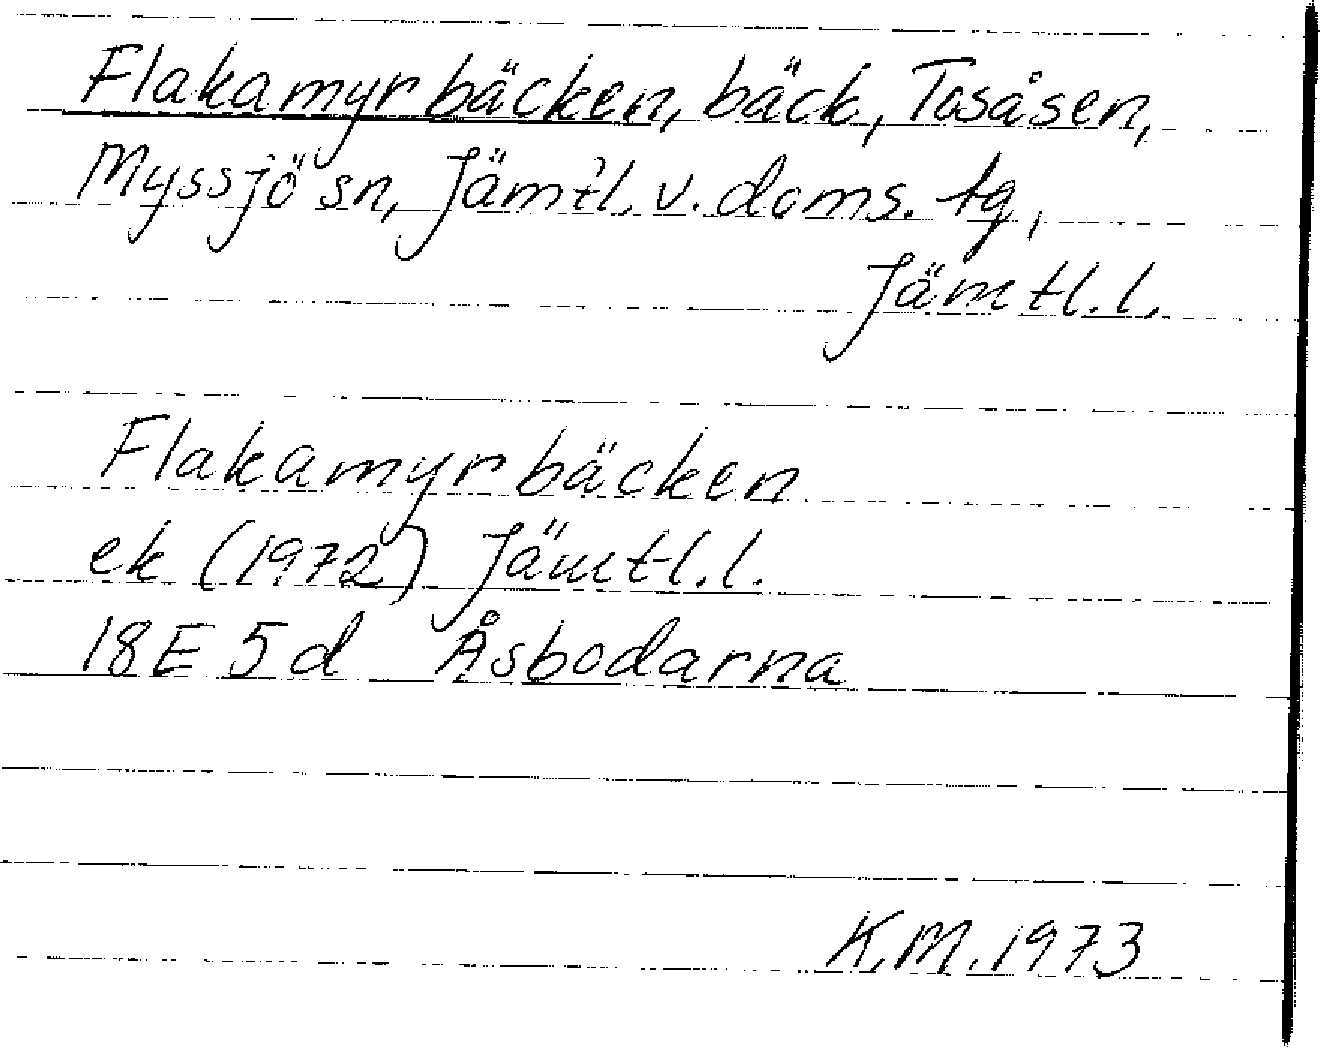 Flakamyrbäcken, bäck, Tosåsen,
Myssjö sn, Jämtl. v. doms. tg,
Jämtl. l.
Flakamyrbäcken
ek (1972) Jämtl. l.
18E 5d Åsbodarna
K.M. 1973